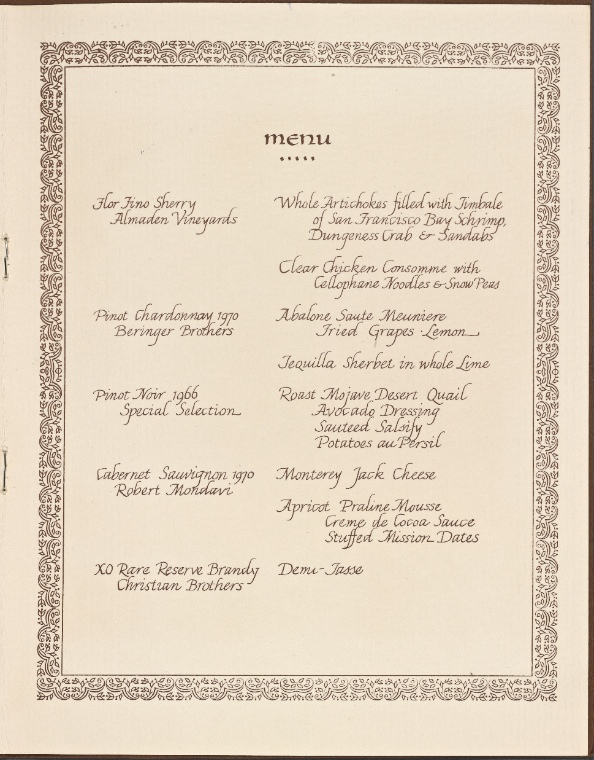 menu
Flor Fino Sherry
Almaden Vineyards
Whole Artichokes filled with Timbale
of San Francisco Bay Schrimp,
Dungeness Crab & Sandabs
Clear Chicken Consomme with
Cellophane Noodles & Snow Peas
Pinot Chardonnay 1970
Beringer Brothers
Abalone Saute Meuniere
Fried Grapes · Lemon
Tequilla Sherbet in whole Lime
Pinot Noir 1966
Special Selection
Roast Mojave Desert Quail
Avocado Dressing
Sauteed Salsify
Potatoes au Persil
Cabernet Sauvignon 1970
Robert Mondavi
Monterey Jack Cheese
Apricot Praline Mousse
Creme de Cocoa Sauce
Stuffed Mission Dates
XO Rare Reserve Brandy
Christian Brothers
Demi-Tasse